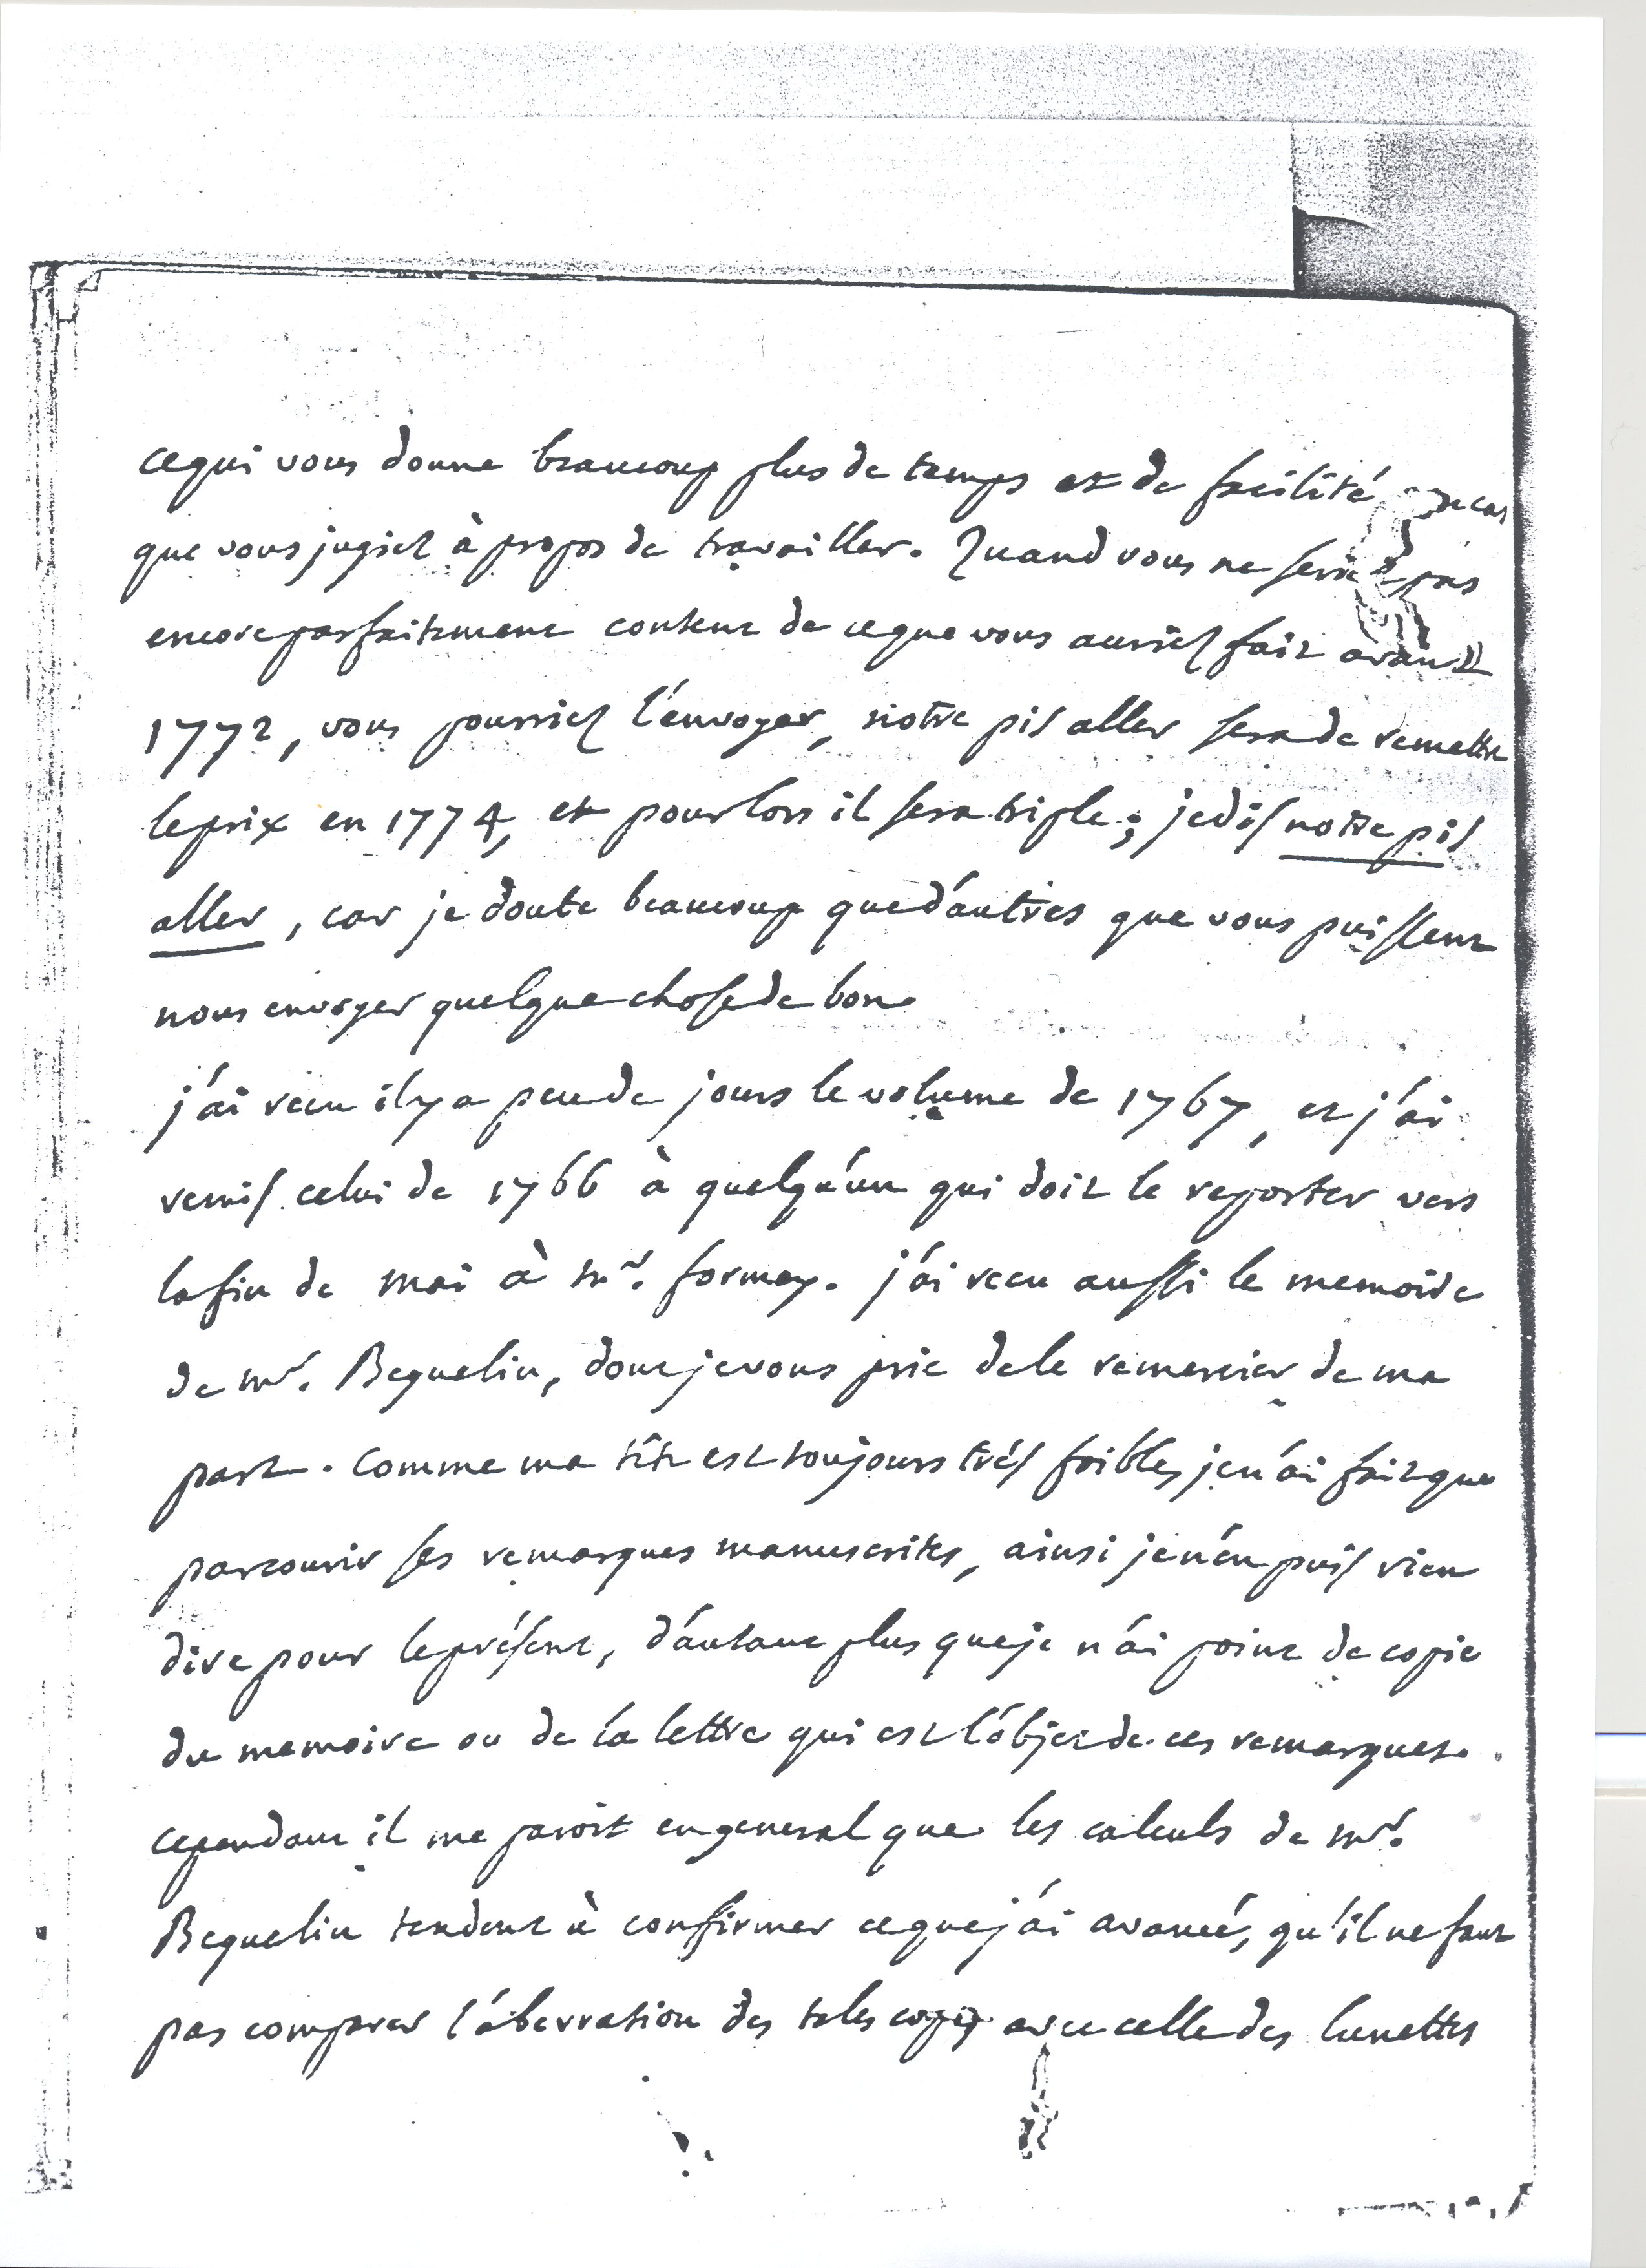 ce qui vous donne beaucoup plus de temps et de facilité cas
que vous jugiez à propos de travailler. Quand vous ne seriez pas
encore parfaitement content de ce que vous auriez fait avant
1772, vous pourriez l'envoyer, notre pis aller sera de remettre
le prix en 1774, et pour lors il sera triple; je dis notre pis
aller, car je doute beaucoup que d'autres que vous puissent
nous envoyer quelque chose de bon.
j'ai reçu il y a peu de jours le volume de 1767, et j'ai
remis celui de 1766 à quelqu'un qui doit le reporter vers
la fin de mai à mr. formey. j'ai recu aussi le memoire
de mr. Beguelin, dont je vous prie de le remercier de ma
part. Comme ma tête est toujours très foible, je n'ai fait que
parcourir ses remarques manuscrites, ainsi je n'en puis rien
dire pour le présent, d'autant plus que je n'ai point de copie
du memoire ou de la lettre qui est l'objet de ces remarques.
cependant il me paroit en general que les calculs de mr.
Beguelin tendent à confirmer ce que j'ai avancé, qu'il ne faut
pas comparer l'aberration des telescopes avec celle des lunettes